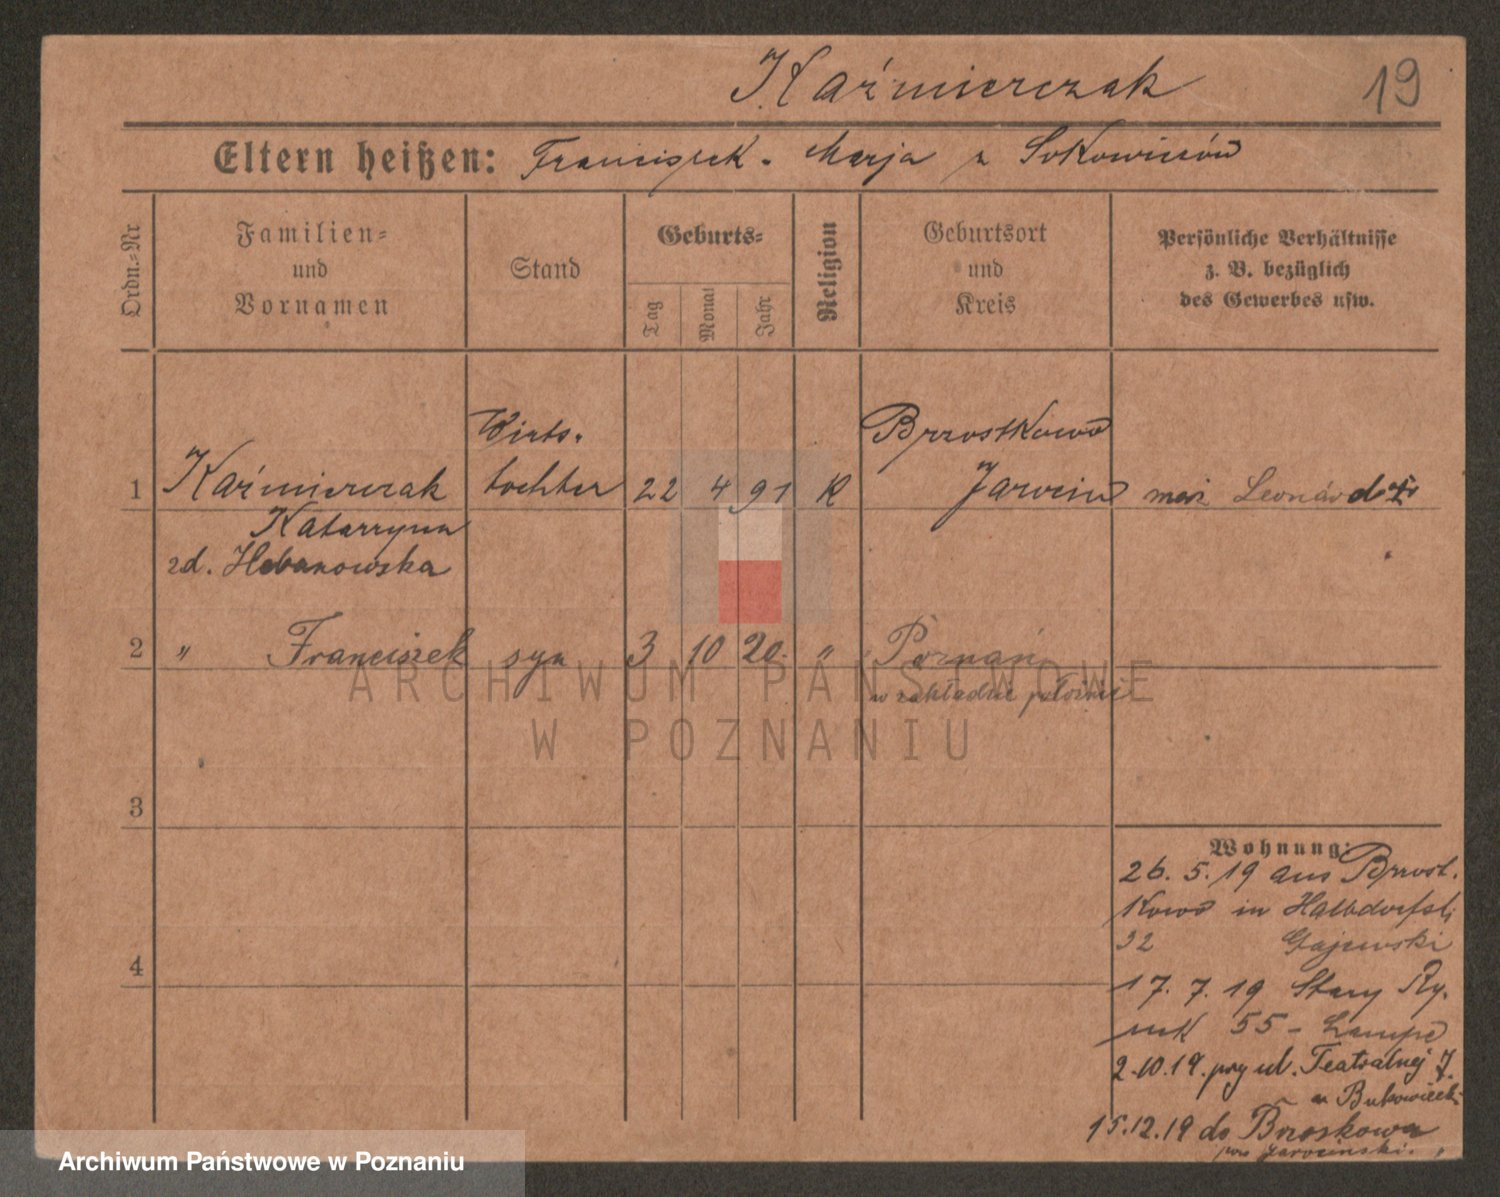 Kaźmierczak
19
Eltern heißen: Franciszek. Marja z
Ordn.-Nr
Familien-
und
Vornamen
Stand
Geburts-
Tag
Monat
Jahr
Religion
Geburtsort
und
Kreis
Persönliche Verhältnisse
z. B. bezüglich
des Gewerbes usw.
1
Kaźmierczak
Katarzyna
zd. Hebanowska
Wirts-
tochter
22 4 91 K
Brzostkowo
Jarocin
mąż Leonard
2 " Franciszek syn 3 10 20. " Poznań
w zakładzie położni
3
4
Wohnung:
26. 5. 19 aus Brzost-
kowo in Halbdorfstr
32 Gajewski
17. 7. 19 Stary Ry-
nek 55 - Lampe
2.10.19. przy ul. Teatralnej 7.
u Bukowiecki
15.12.19 do Brzoskowa
pow jarociński.
ARCHIWUM PAŃSTWOWE
W POZNANIU
Archiwum Państwowe w Poznaniu